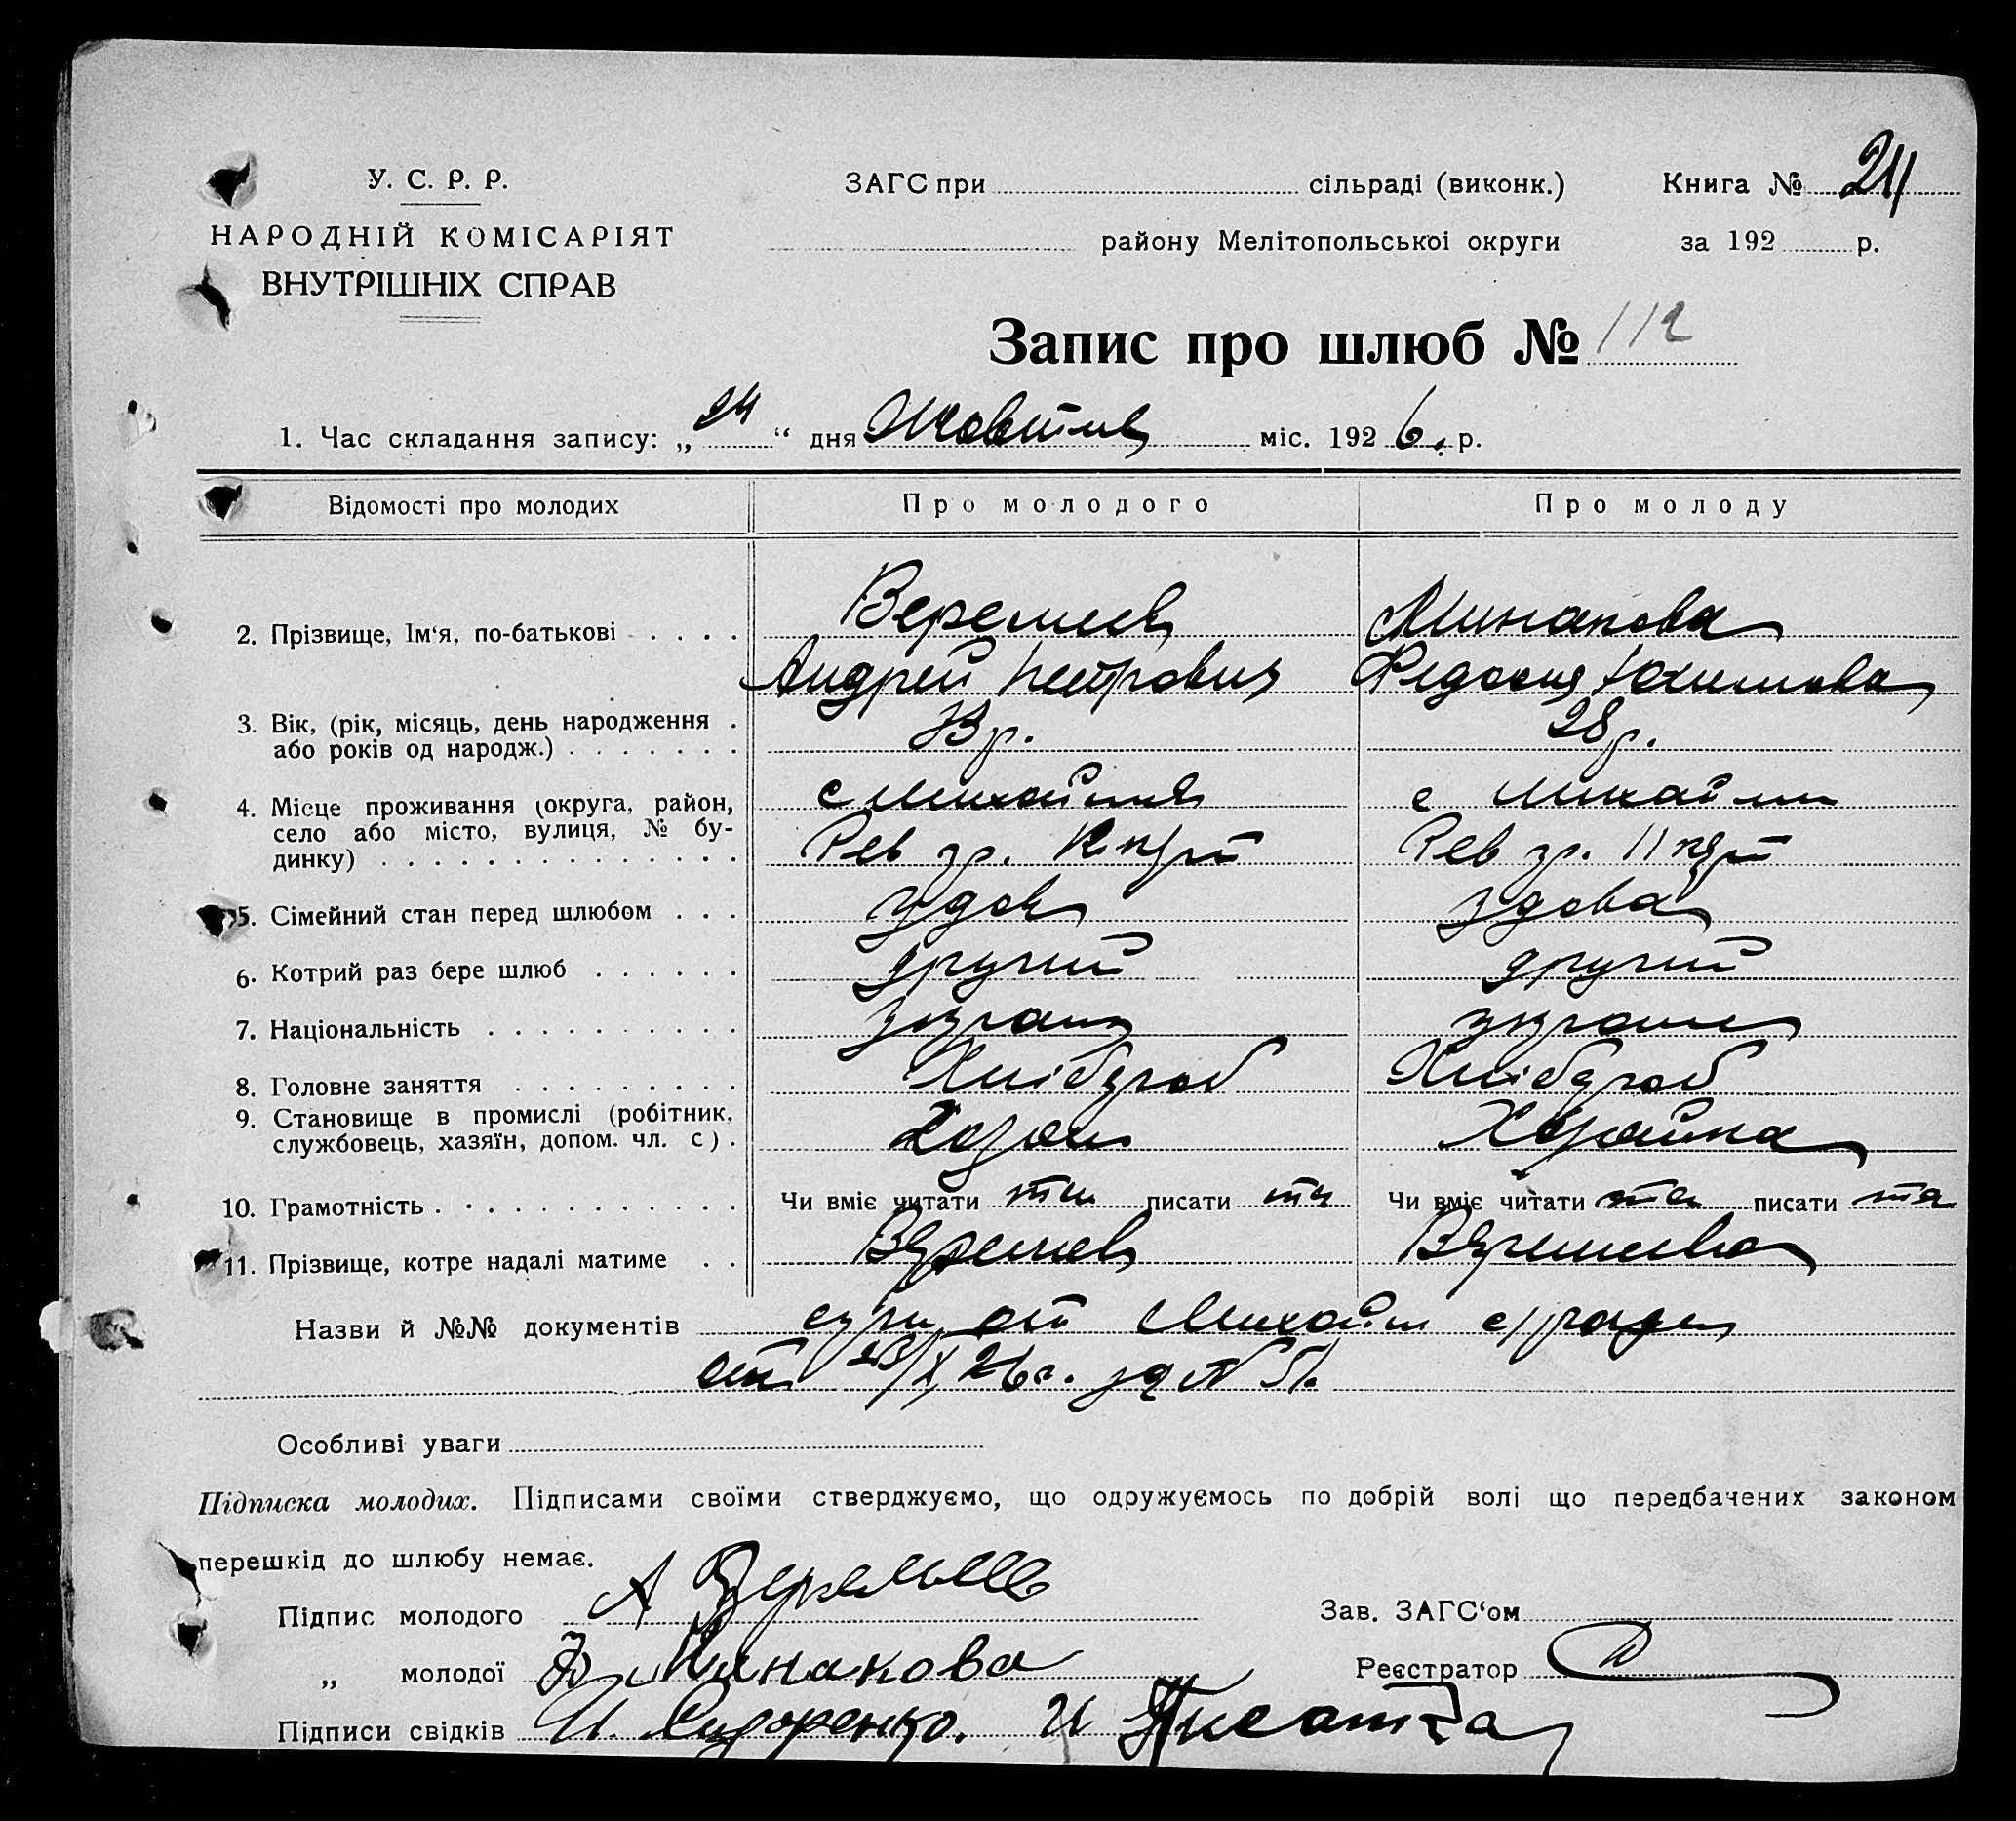 У. С. Р. Р.
НАРОДНІЙ КОМІСАРІЯТ
ВНУТРІШНІХ СПРАВ
ЗАГС при сільраді (виконк.)
району Мелітопольської округи
Книга № 24
за 192 р.
Запис про шлюб № 112
1. Час складання запису: „24“ дня Жовтня міс. 1926. р.
Відомості про молодих Про молодого Про молоду
2. Прізвище, Ім‘я, по-батькові Веремеев Минакова
Андрей Петрович Федосия Юхимова
3. Вік, (рік, місяць, день народження
або років од народж.) 33 р. 28 р.
4. Місце проживання (округа, район,
село або місто, вулиця, № бу-
динку) с Михайлів с Михайлів
Рев гр. Рев гр. 11
5. Сімейний стан перед шлюбом удов удова
6. Котрий раз бере шлюб другий другий
7. Національність
8. Головне заняття Хлібороб Хлібороб
9. Становище в промислі (робітник,
службовець, хазяїн, допом. чл. с). Хазяїн Хазяйка
10. Грамотність Чи вміє читати так писати так Чи вміє читати так писати так
11. Прізвище, котре надалі матиме Веремеев Веремеева
Назви й №№ документів от Михайл с/ради
от 23/X 26 г. за № 51.
Особливі уваги
Підписка молодих. Підписами своїми стверджуємо, що одружуємось по добрій волі що передбачених законом
перешкід до шлюбу немає.
Підпис молодого А Веремьев
Зав. ЗАГС‘ом
„ молодої Ф Минакова
Реєстратор
Підписи свідків И. Сидоренко. И